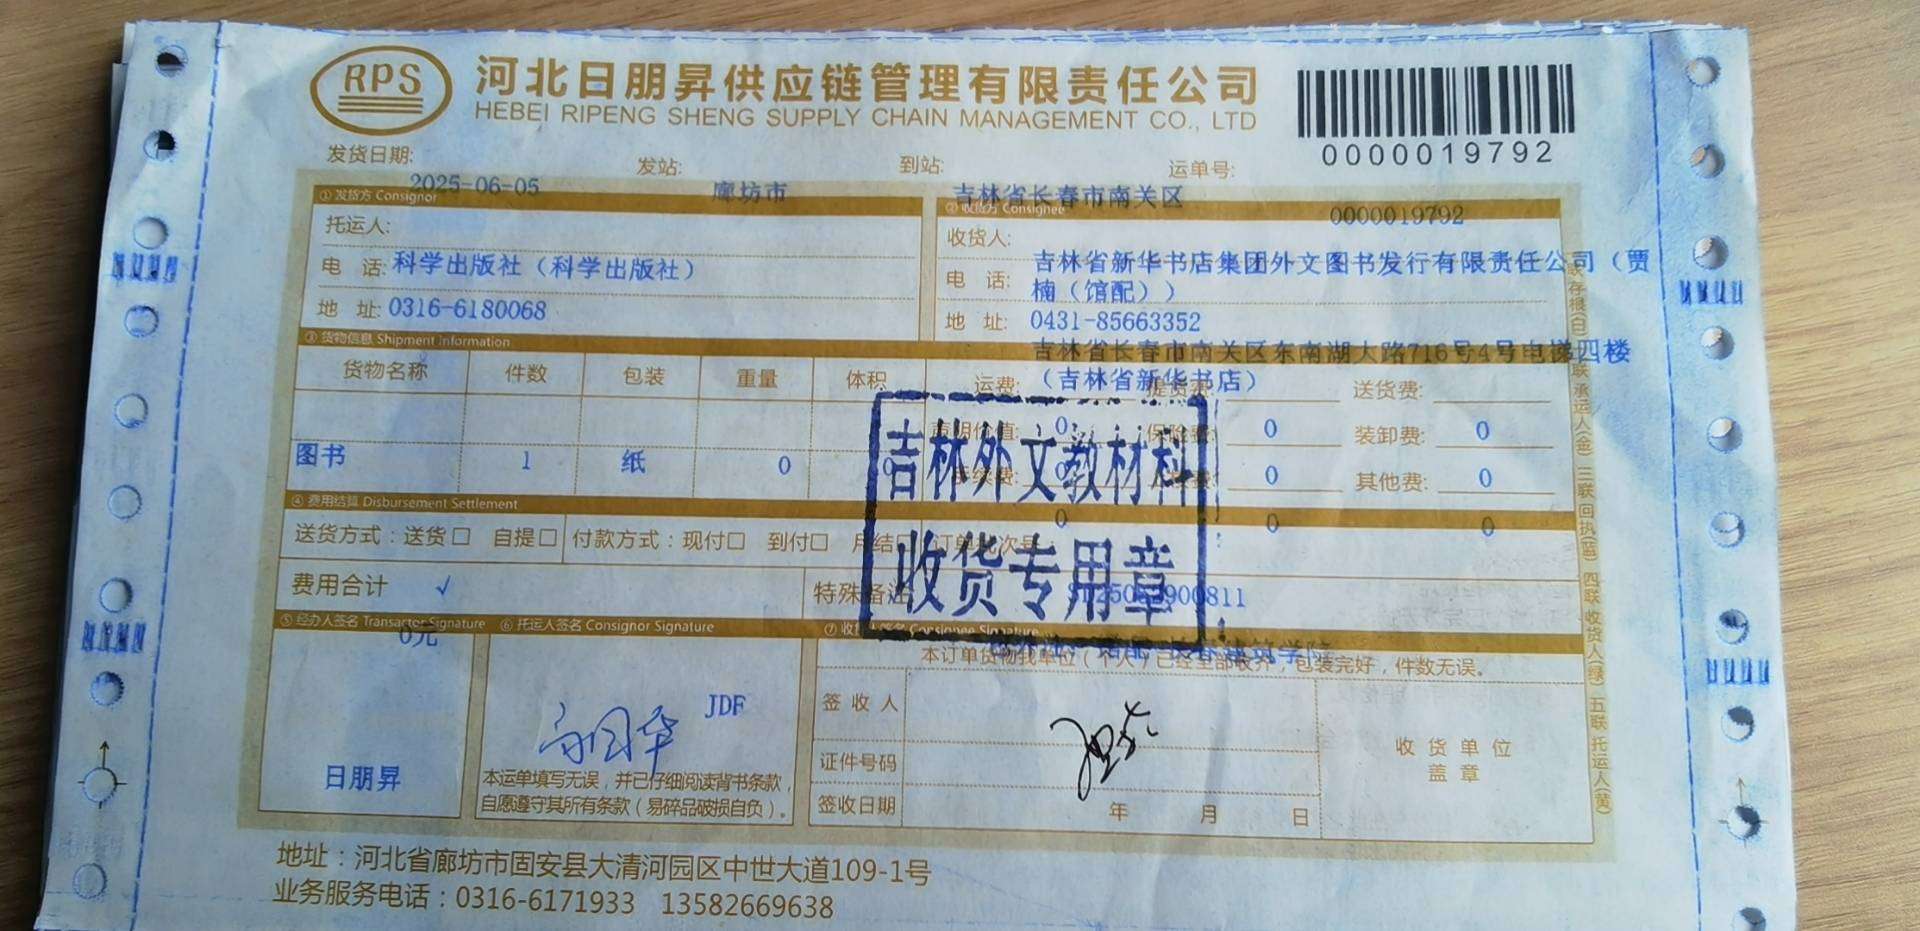 RPS
河北日朋昇供应链管理有限责任公司
HEBEI RIPENG SHENG SUPPLY CHAIN MANAGEMENT CO., LTD
0000019792
发货日期: 发站: 到站: 运单号:
2025-06-05 廊坊市 吉林省长春市南关区 0000019792
① 发货方 Consignor ② 收货方 Consignee
托运人: 收货人:
电 话: 科学出版社（科学出版社） 电 话: 吉林省新华书店集团外文图书发行有限责任公司（贾
楠（馆配））
地 址: 0316-6180068 地 址: 0431-85663352
③ 货物信息 Shipment Information
吉林省长春市南关区东南湖大路716号4号电梯四楼
（吉林省新华书店）
货物名称 件数 包装 重量 体积 运费: 提货费: 送货费:
声明价值: 0 保险费: 0 装卸费: 0
图书 1 纸 0
0 其他费: 0
④ 费用结算 Disbursement Settlement
0 0 0
送货方式：送货□ 自提□ 付款方式：现付□ 到付□ 月结□ 订单批次号:
费用合计 √ 特殊备注
900811
吉林外文教材料
收货专用章
⑤ 经办人签名 Transactor Signature ⑥ 托运人签名 Consignor Signature ⑦ 收货人签名 Consignee Signature
0元
建筑学院
本订单货物我单位（个人）已经全部收齐，包装完好，件数无误。
JDF
日朋昇
本运单填写无误，并已仔细阅读背书条款，
自愿遵守其所有条款（易碎品破损自负）。
签 收 人
证件号码
签收日期 年 月 日
收 货 单 位
盖 章
存根(白) 二联 承运人(金) 三联 回执(蓝) 四联 收货人(绿) 五联 托运人(黄)
地址：河北省廊坊市固安县大清河园区中世大道109-1号
业务服务电话：0316-6171933 13582669638